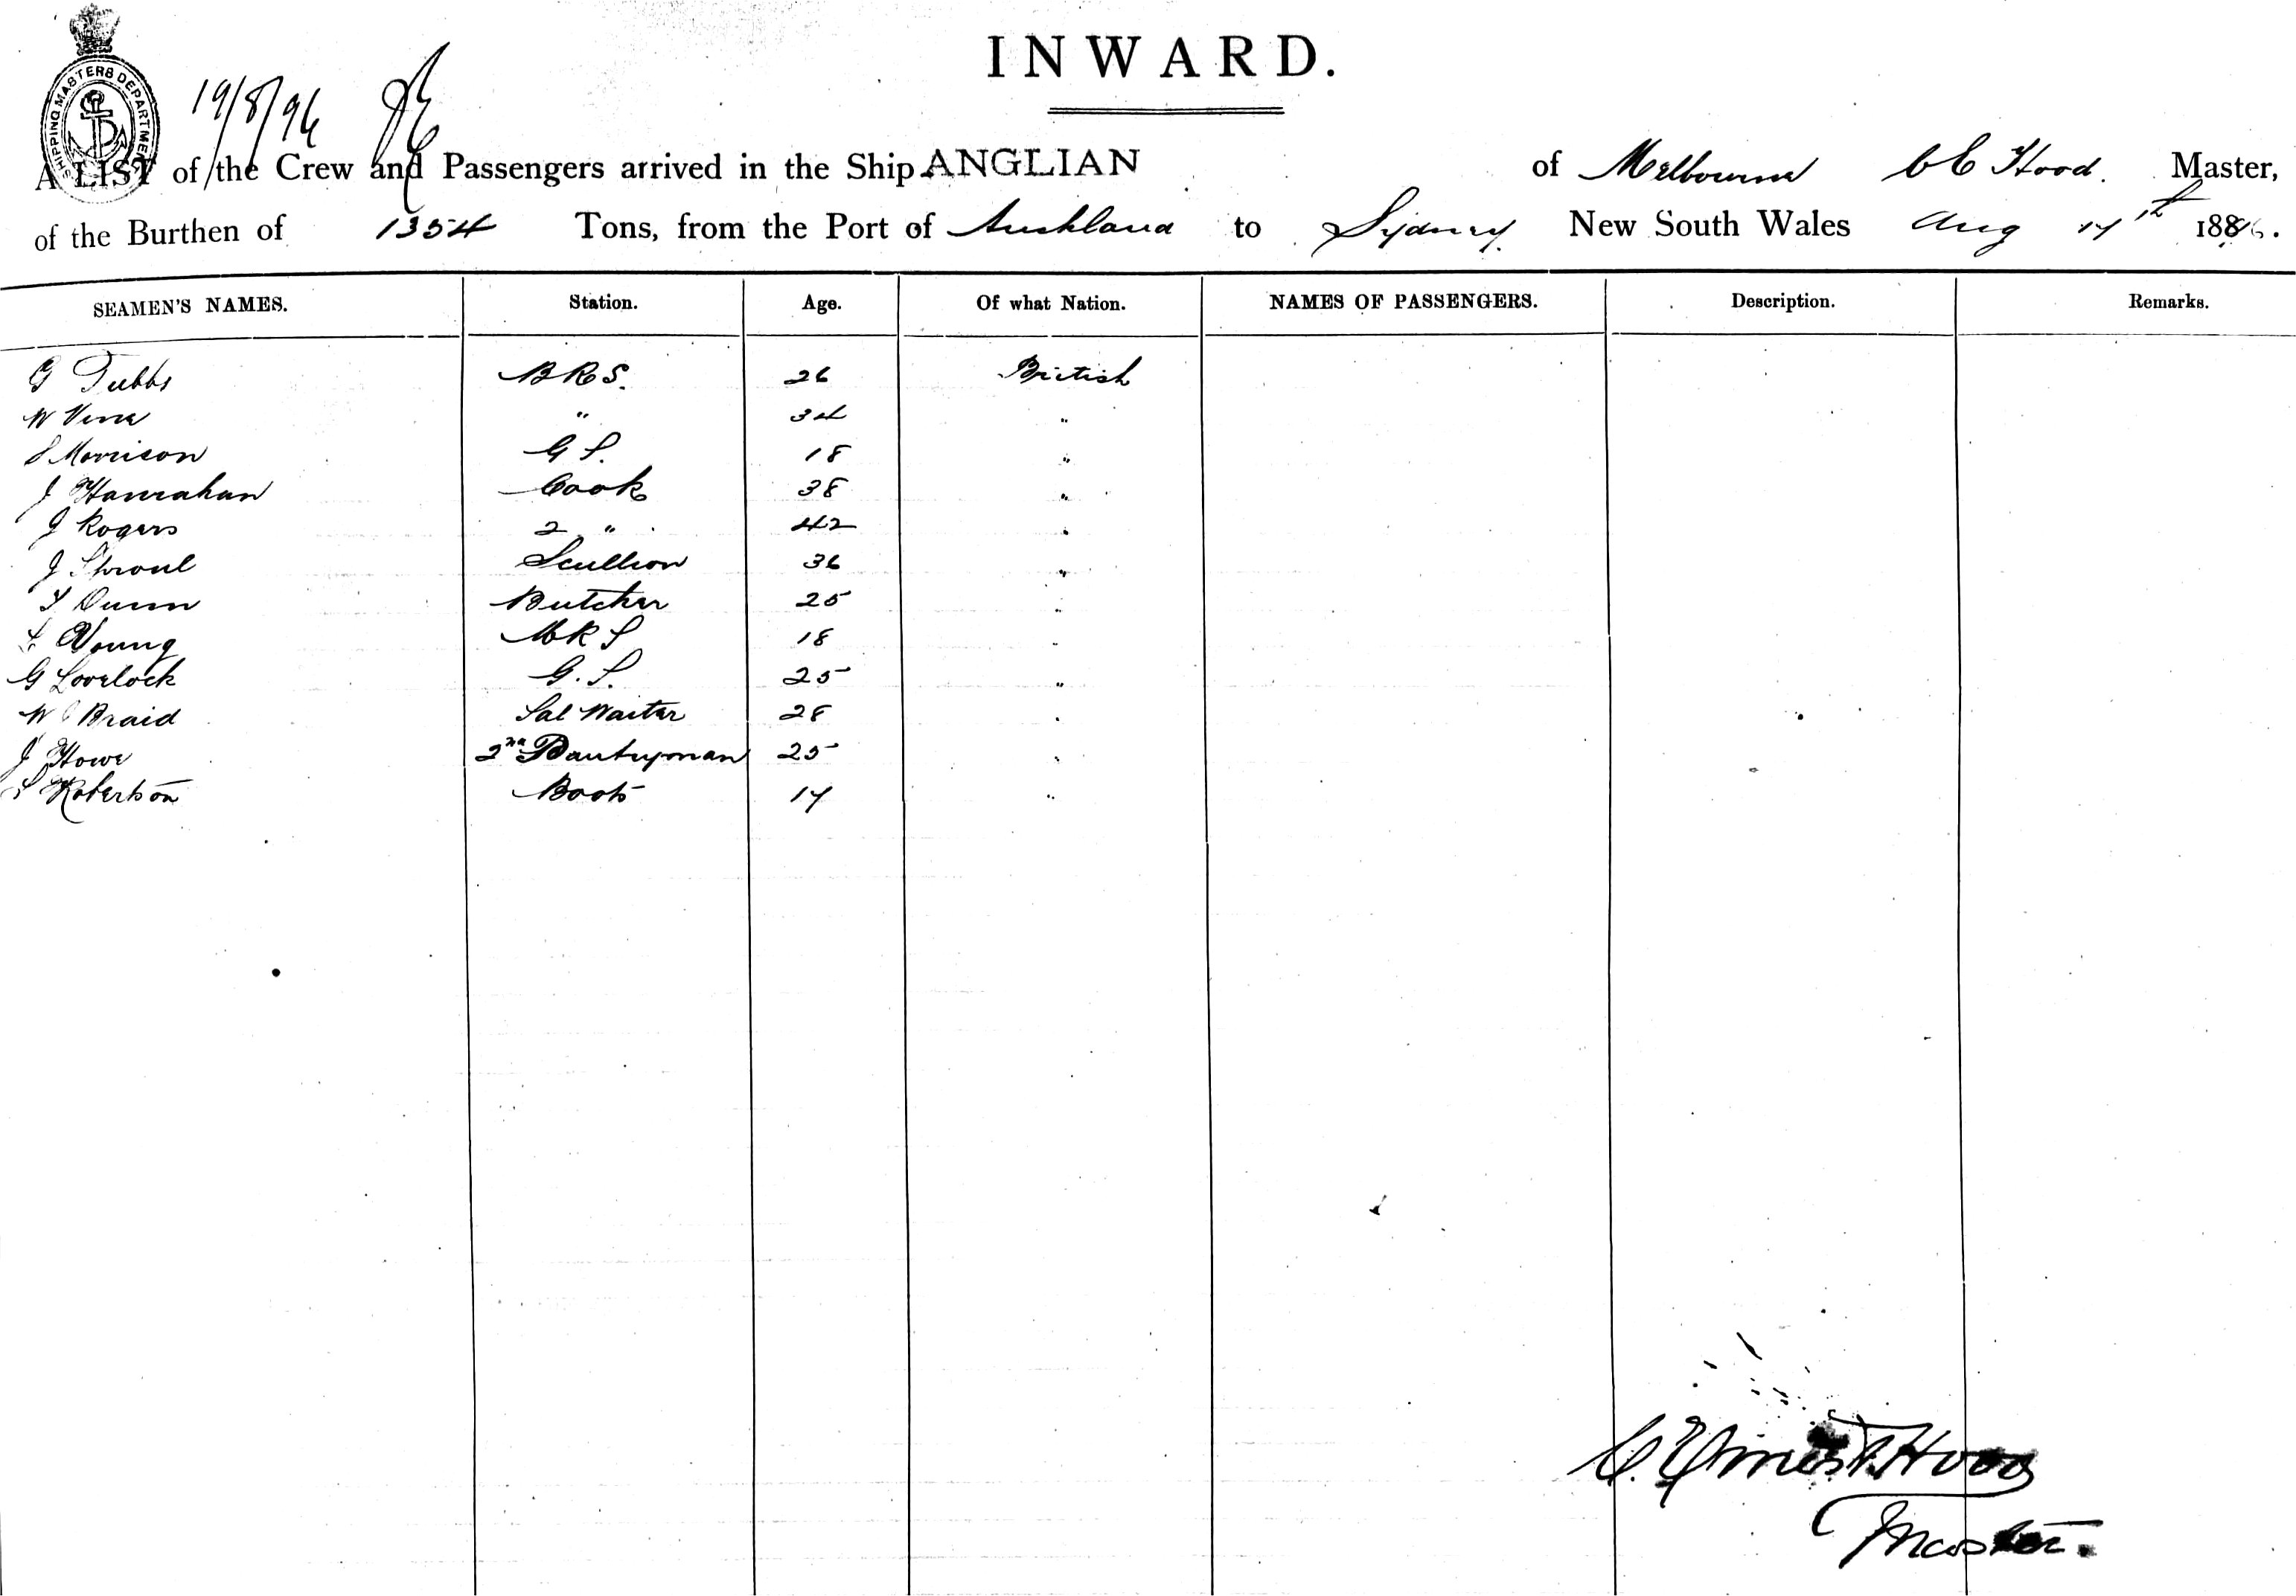 INWARD.
SHIPPING MASTERS DEPARTMENT
19/8/96
A LIST of the Crew and Passengers arrived in the Ship ANGLIAN of Melbourne C E Hood. Master,
of the Burthen of 1354 Tons, from the Port of Auckland to Sydney New South Wales Aug 17th 1896.
SEAMEN'S NAMES. Station. Age. Of what Nation. NAMES OF PASSENGERS. Description. Remarks.
G Tubbs BRS. 26 British
W Vine " 34 "
S Morrison G S. 18 "
J Hanrahan Cook 38 "
J Rogers 2 " 42 "
J Scullion 36 "
Dunn Butcher 25 "
Young M R S 18 "
G Lovelock G. S. 25 "
W Braid Sal Waiter 28 "
J Howe 2nd Pantryman 25 "
Robertson Boots 17 "
C. Ernest Hood
Master.